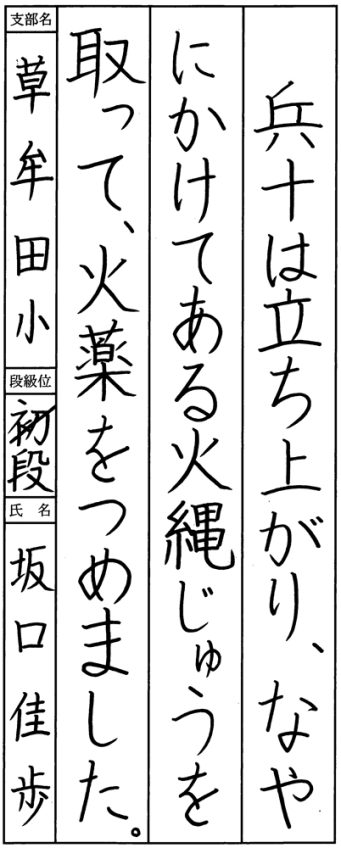 兵十は立ち上がり、なや
にかけてある火縄じゅうを
取って、火薬をつめました。
支部名
草牟田小
段級位
初段
氏名
坂口佳歩